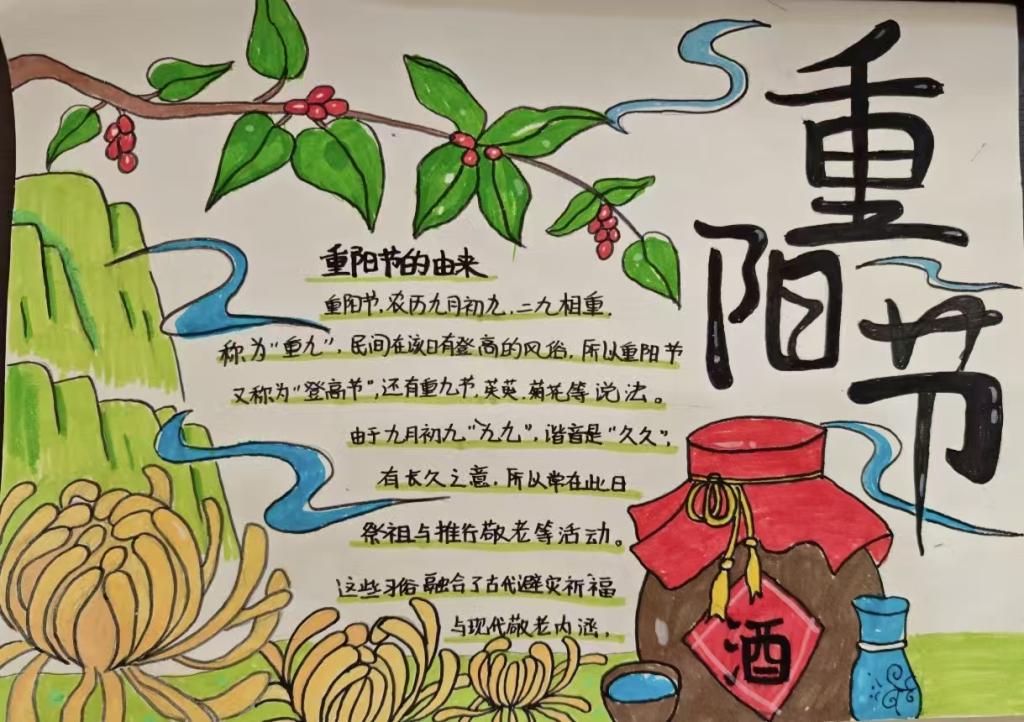 重阳节
重阳节的由来
重阳节,农历九月初九,二九相重,
称为"重九",民间在该日有登高的风俗,所以重阳节
又称为"登高节",还有重九节,茱萸,菊花等说法。
由于九月初九"九九",谐音是"久久",
有长久之意,所以常在此日
祭祖与推行敬老等活动。
这些习俗融合了古代避灾祈福
与现代敬老内涵,
酒